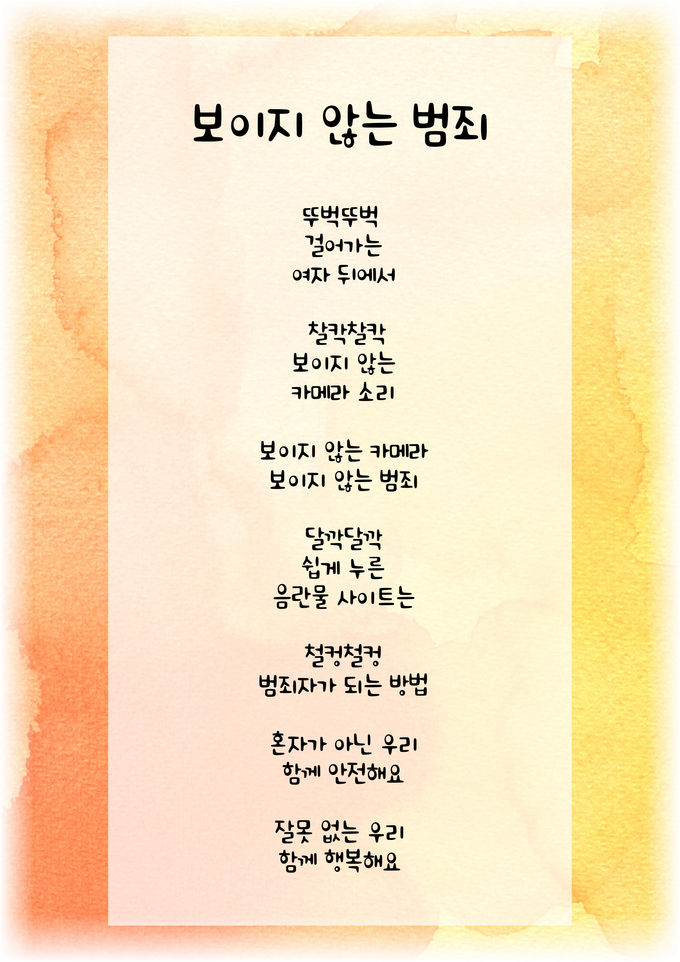 보이지 않는 범죄
뚜벅뚜벅
걸어가는
여자 뒤에서
찰칵찰칵
보이지 않는
카메라 소리
보이지 않는 카메라
보이지 않는 범죄
달깍달깍
쉽게 누른
음란물 사이트는
철컹철컹
범죄자가 되는 방법
혼자가 아닌 우리
함께 안전해요
잘못 없는 우리
함께 행복해요